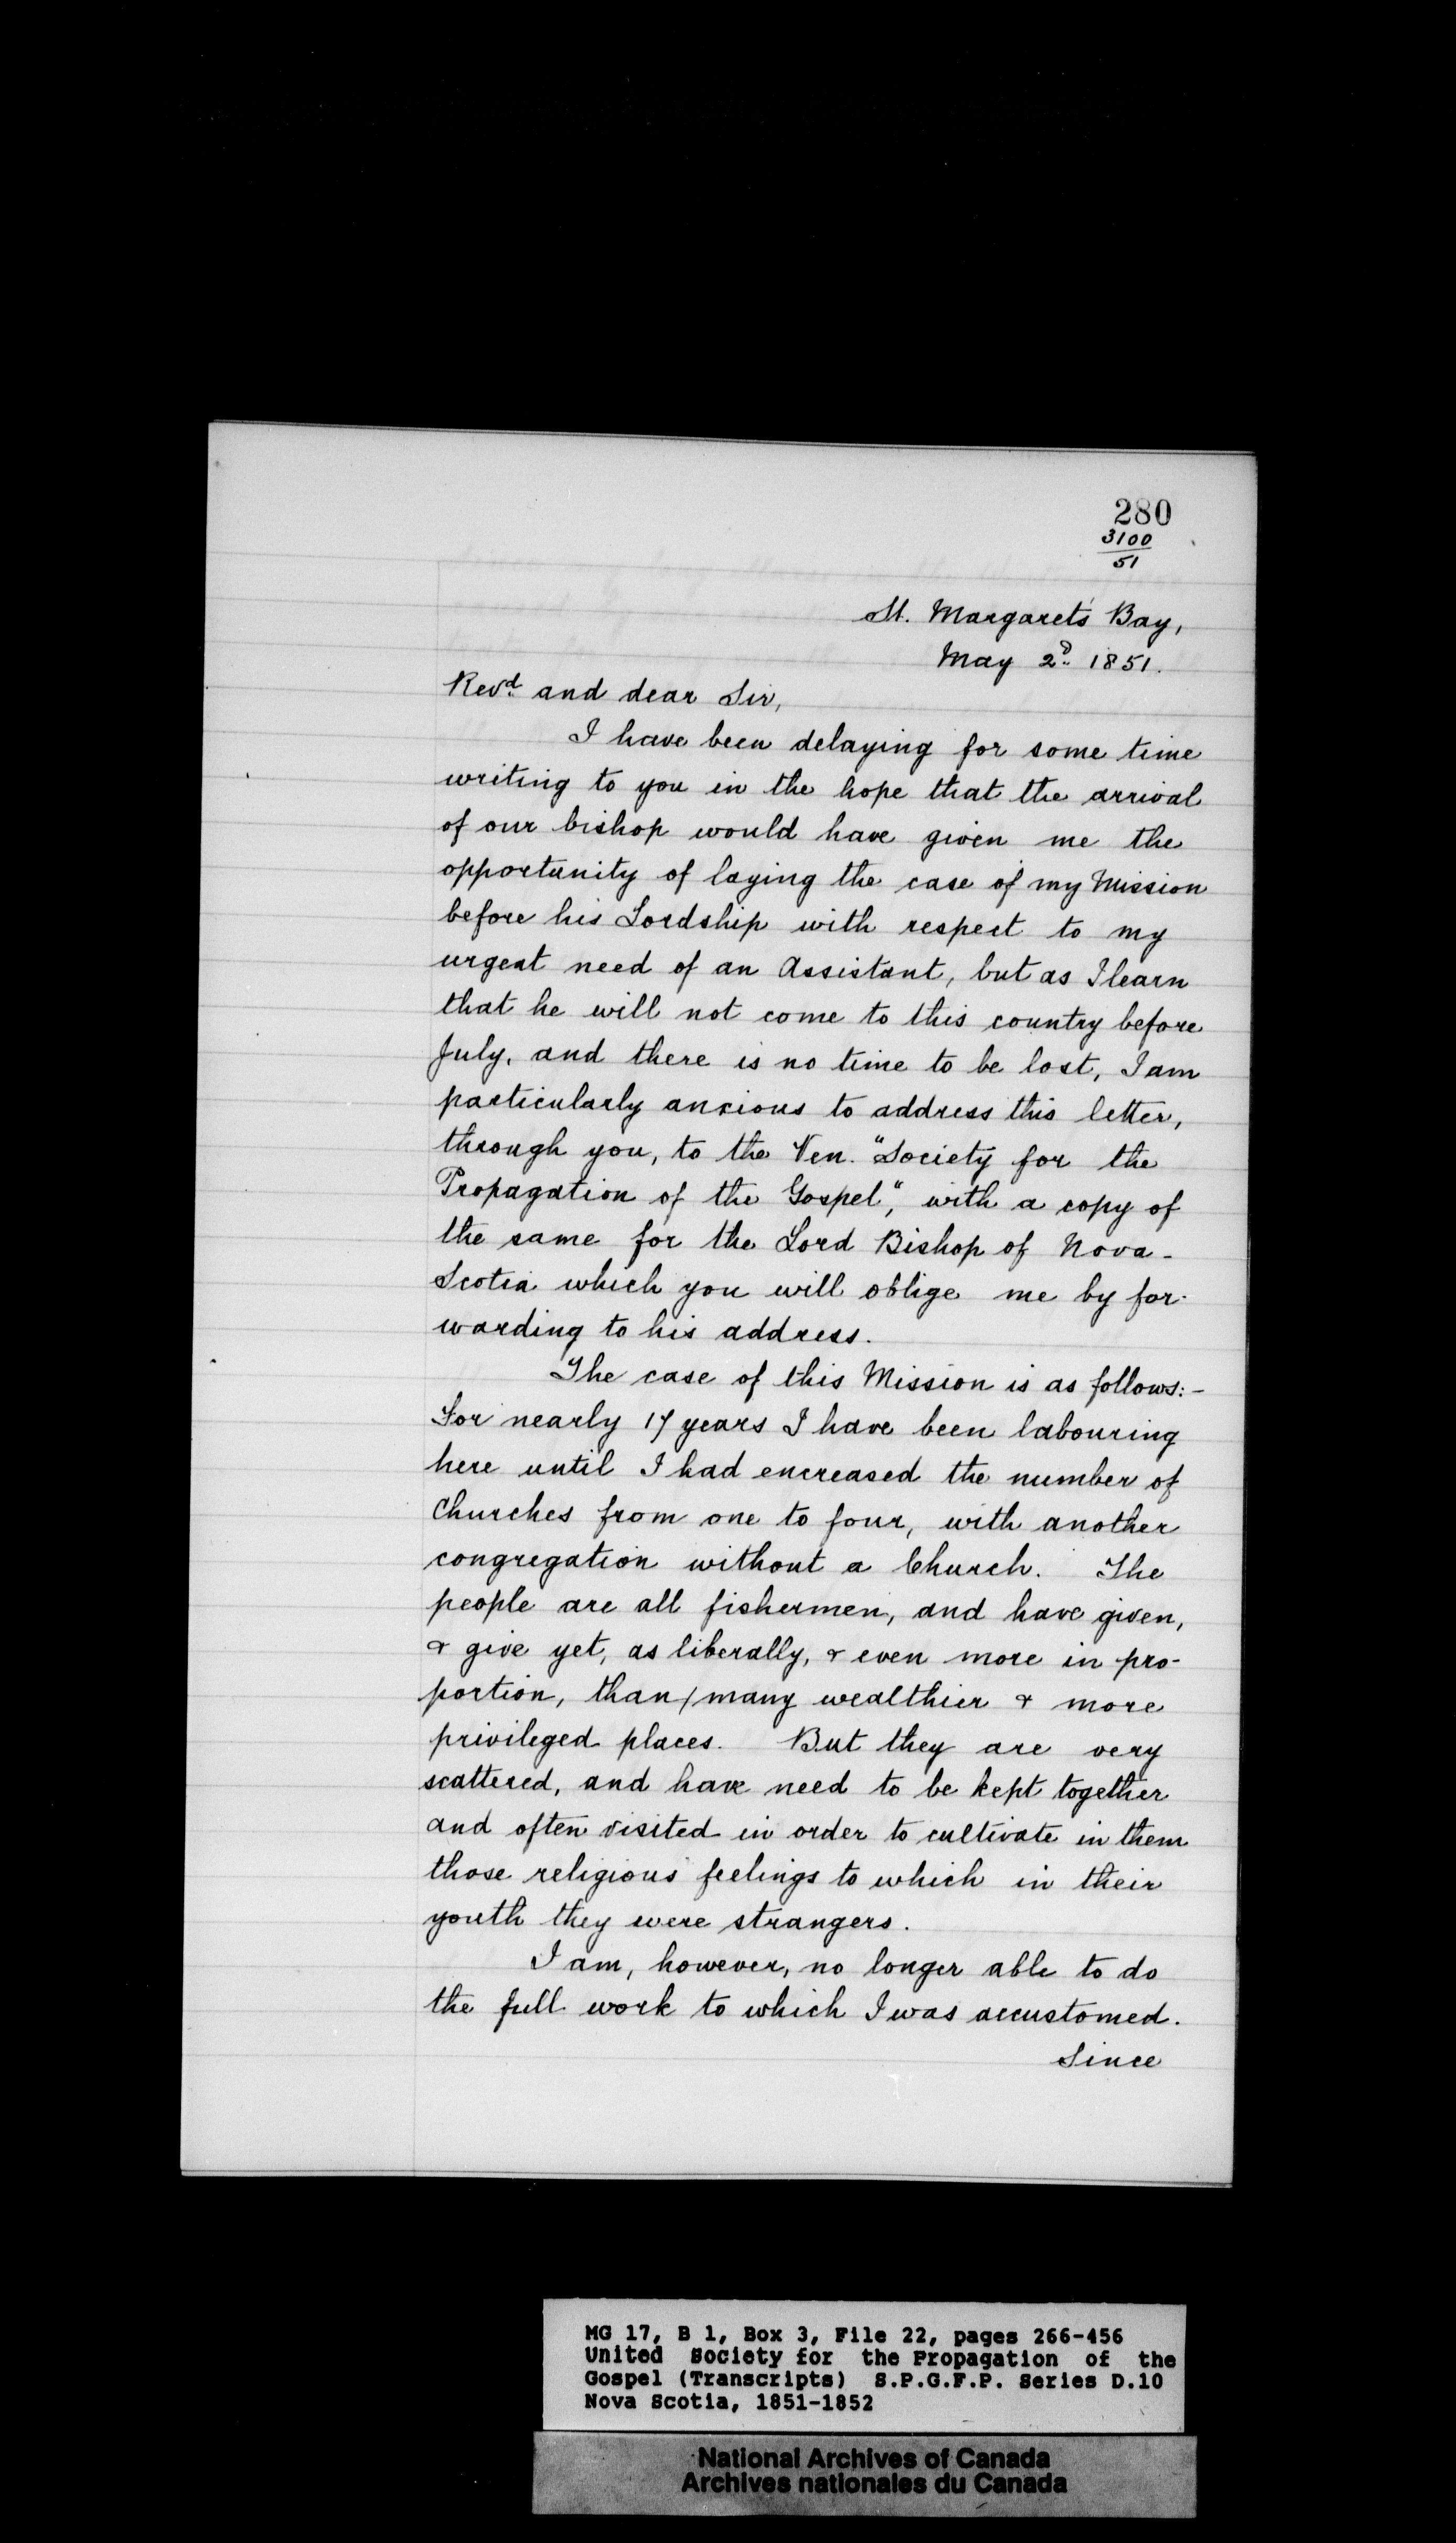 280
3100
51
St. Margaret's Bay,
May 2d. 1851.
Revd. and dear Sir,
I have been delaying for some time
writing to you in the hope that the arrival
of our bishop would have given me the
opportunity of laying the case of my Mission
before his Lordship with respect to my
urgent need of an Assistant, but as I learn
that he will not come to this country before
July, and there is no time to be lost, I am
particularly anxious to address this letter,
through you, to the Ven. "Society for the
Propagation of the Gospel", with a copy of
the same for the Lord Bishop of Nova-
Scotia which you will oblige me by for-
warding to his address.
The case of this Mission is as follows:-
For nearly 17 years I have been labouring
here until I had encreased the number of
Churches from one to four, with another
congregation without a Church. The
people are all fishermen, and have given,
& give yet, as liberally, & even more in pro-
portion, than/many wealthier & more
privileged places. But they are very
scattered, and have need to be kept together
and often visited in order to cultivate in them
those religious feelings to which in their
youth they were strangers.
I am, however, no longer able to do
the full work to which I was accustomed.
Since
MG 17, B 1, Box 3, File 22, pages 266-456
United Society for the Propagation of the
Gospel (Transcripts) S.P.G.F.P. Series D.10
Nova Scotia, 1851-1852
National Archives of Canada
Archives nationales du Canada